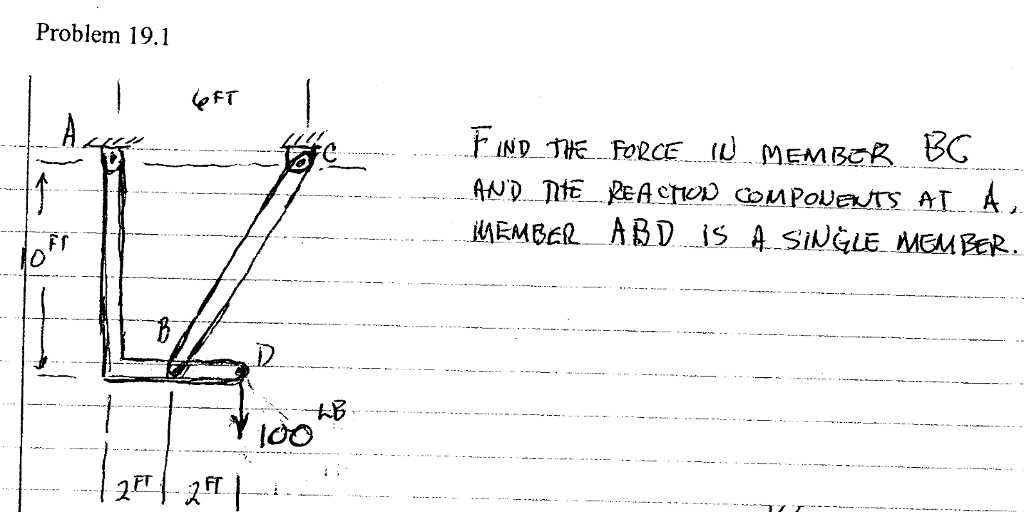 Problem 19.1
6FT
A
C
FIND THE FORCE IN MEMBER BC
AND THE REACTION COMPONENTS AT A.
MEMBER ABD IS A SINGLE MEMBER.
10 FT
B
D
100 LB
2 FT 2 FT